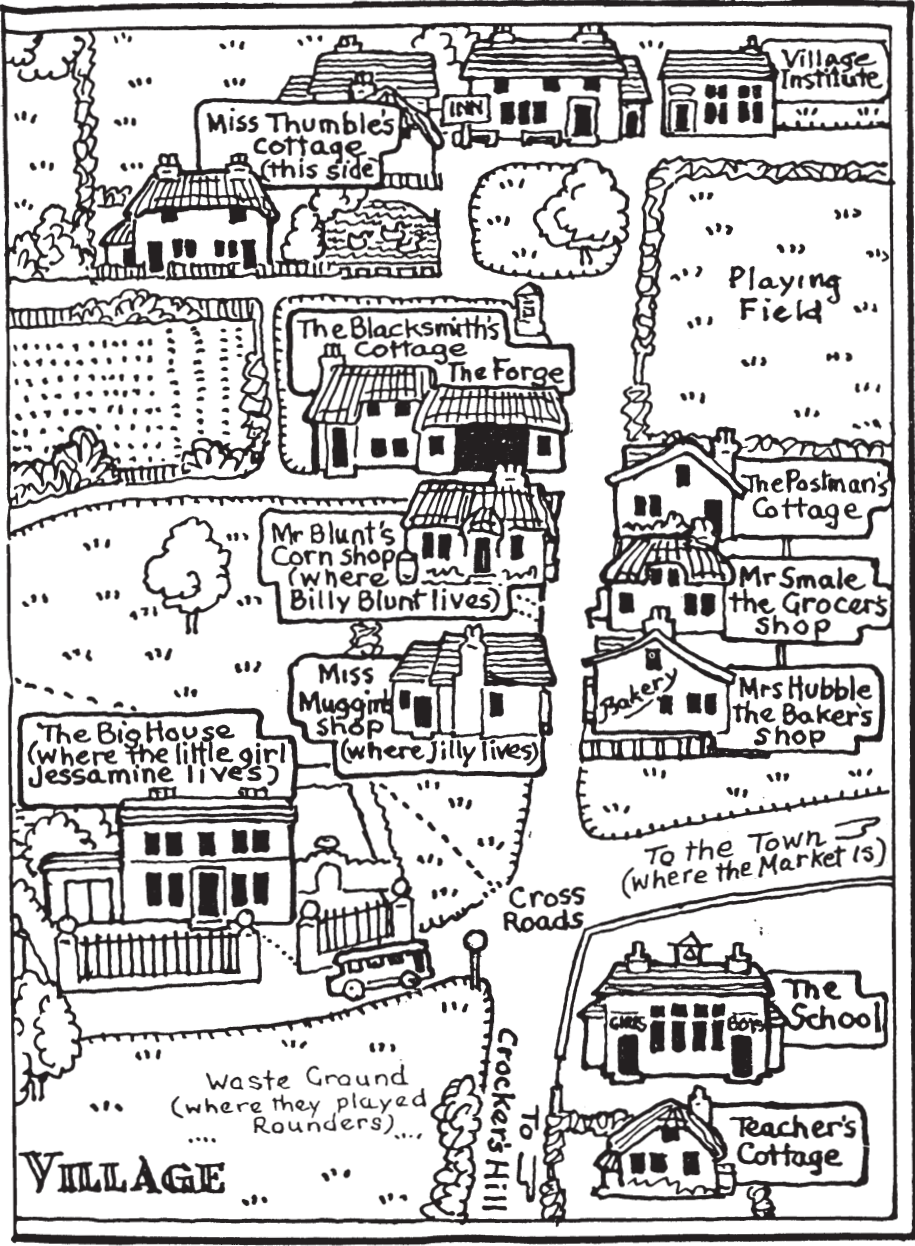 Village
Institute
INN
Miss Thumble's
Cottage
(this side)
Playing
Field
The Blacksmith's
Cottage
The Forge
The Postman's
Cottage
Mr Blunt's
Corn shop
(where
Billy Blunt lives)
Mr Smale
the Grocer's
shop
Miss
Muggins
shop
(where Jilly lives)
Bakery
Mrs Hubble
the Baker's
shop
The Big House
(where the little girl
Jessamine lives)
To the Town
(where the Market is)
Cross
Roads
The
School
GIRLS
BOYS
Waste Ground
(where they played
Rounders)
To
Crocker's Hill
Teacher's
Cottage
VILLAGE